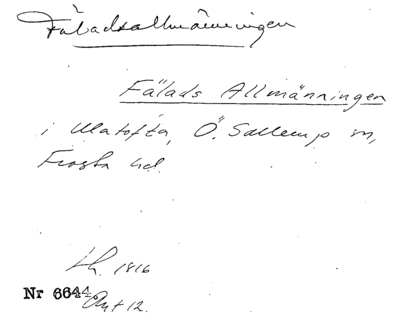 Fäladsallmänningen
Fälads Allmänningen
i Ulatofta, Ö. Sallerup sn,
Frosta hd.
Lh. 1816
Nr 6644
Akt 12.